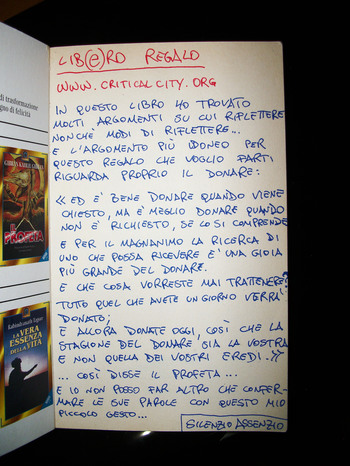 LIB(e)RO REGALO
WWW.CRITICALCITY.ORG
IN QUESTO LIBRO HO TROVATO
MOLTI ARGOMENTI SU CUI RIFLETTERE
NONCHÈ MODI DI RIFLETTERE...
E L'ARGOMENTO PIÙ IDONEO PER
QUESTO REGALO CHE VOGLIO FARTI
RIGUARDA PROPRIO IL DONARE:
« ED E' BENE DONARE QUANDO VIENE
CHIESTO, MA È MEGLIO DONARE QUANDO
NON È RICHIESTO, SE LO SI COMPRENDE
E PER IL MAGNANIMO LA RICERCA DI
UNO CHE POSSA RICEVERE È UNA GIOIA
PIÙ GRANDE DEL DONARE.
E CHE COSA VORRESTE MAI TRATTENERE?
TUTTO QUEL CHE AVETE UN GIORNO VERRA'
DONATO;
E ALLORA DONATE OGGI, COSÌ CHE LA
STAGIONE DEL DONARE SIA LA VOSTRA
E NON QUELLA DEI VOSTRI EREDI..»
... COSÌ DISSE IL PROFETA...
E IO NON POSSO FAR ALTRO CHE CONFER-
MARE LE SUE PAROLE CON QUESTO MIO
PICCOLO GESTO...
SILENZIO ASSENZIO
di trasformazione
gno di felicità
PROFETA
LA VERA
ESSENZA
DELLA VITA